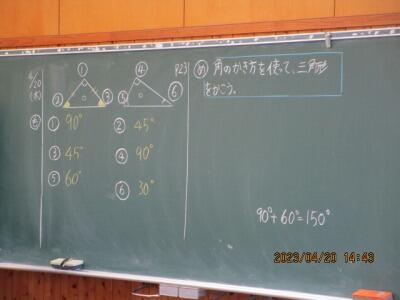 4/20
(木)
① ② ③
④ ⑤ ⑥
P23
め 角のかき方を使って、三角形
をかこう。
① 90° ② 45°
③ 45° ④ 90°
⑤ 60° ⑥ 30°
90°+60°=150°
2023/04/20 14:43